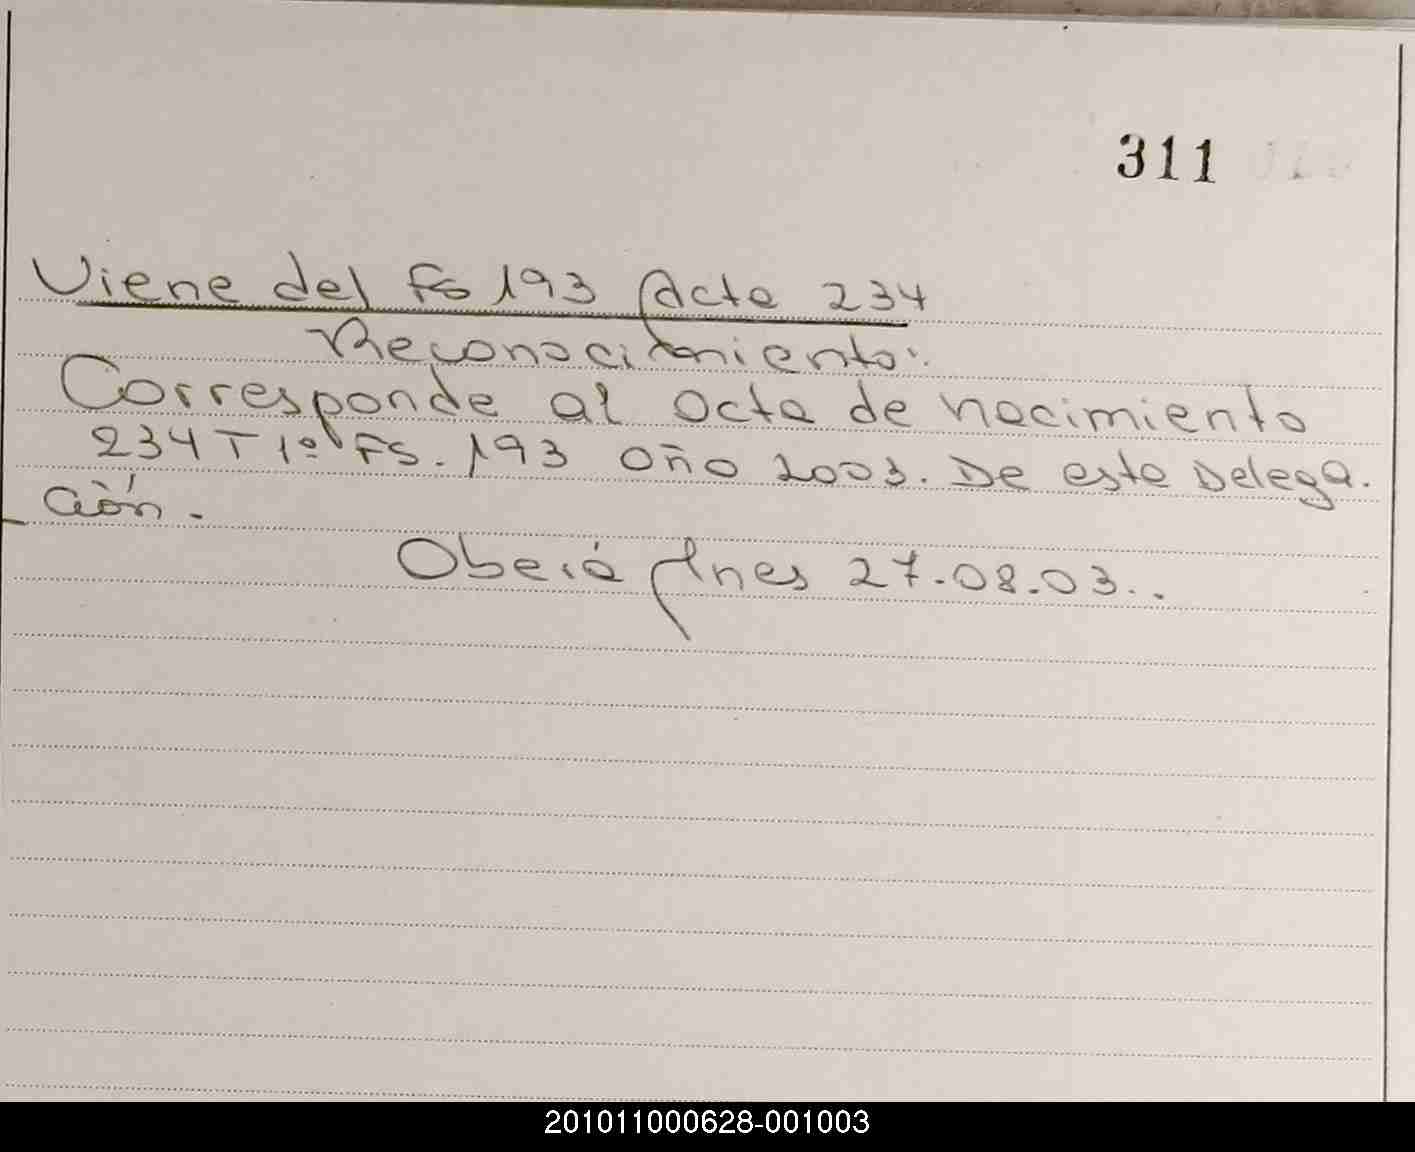 311
Viene del Fs 193 Acta 234
Reconocimiento:
Corresponde al acta de nacimiento
234 T 1º FS. 193 año 2003. De esta Delega.
ción.
Oberá Ines 27.08.03..
201011000628-001003